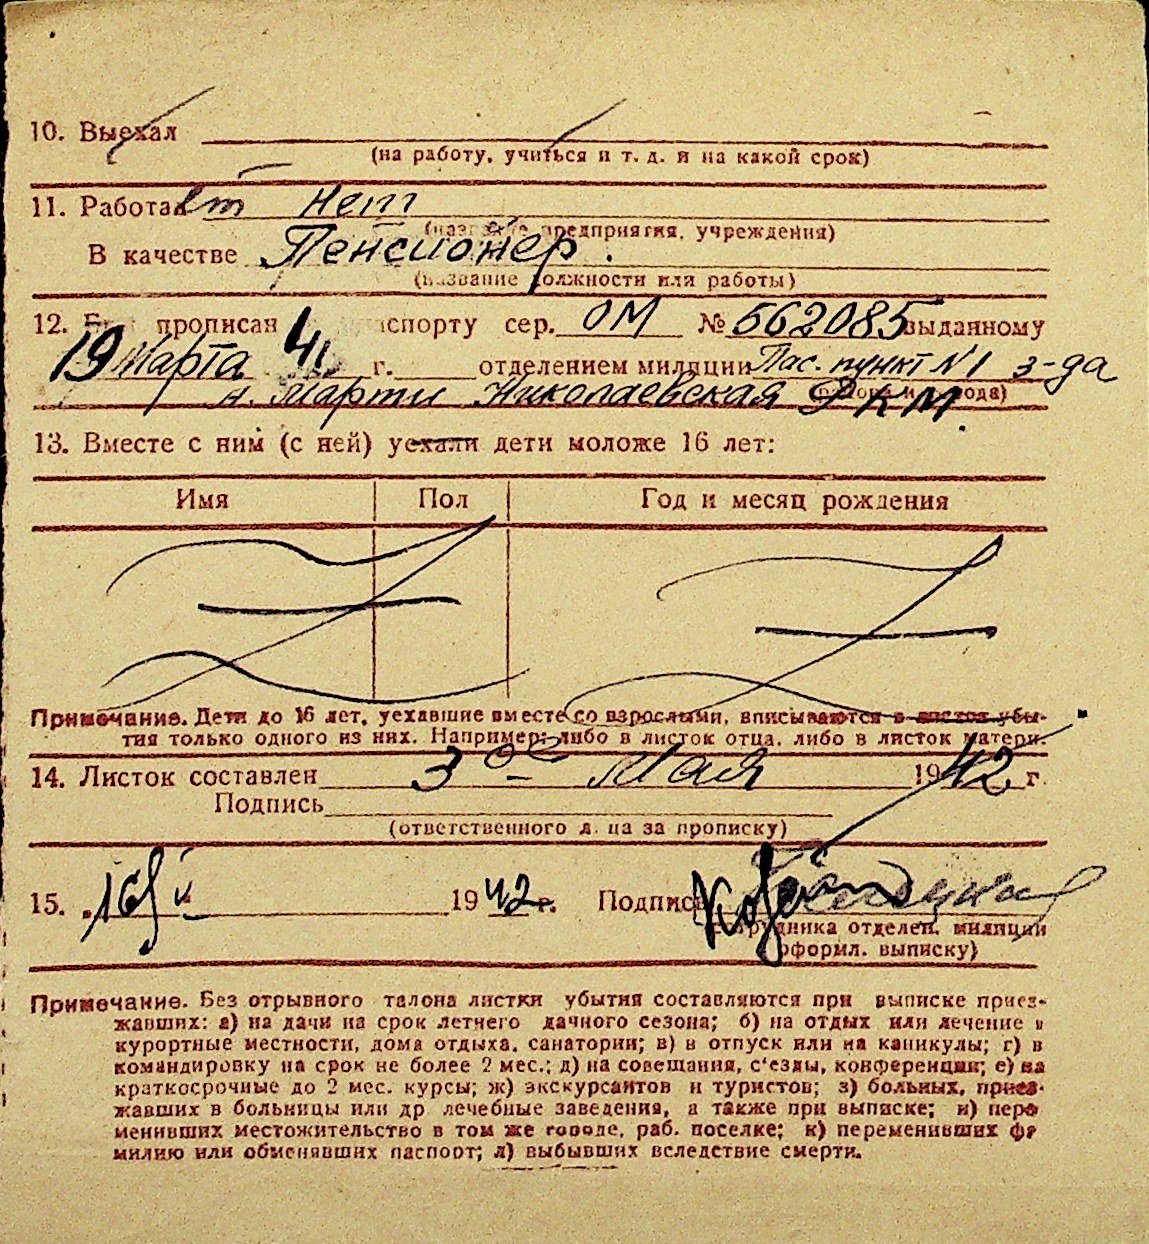 10. Выехал
(на работу, учиться и т. д. и на какой срок)
11. Работает нет
(название предприятия, учреждения)
В качестве Пенсионер.
(название должности или работы)
12. Был прописан по паспорту сер. ОМ № 562085 выданному
19 Марта 41 г. отделением милиции Пас. пункт N1 з-да
и. Марти Николаевская РКМ.
13. Вместе с ним (с ней) уехали дети моложе 16 лет:
Имя Пол Год и месяц рождения
Примечание. Дети до 16 лет, уехавшие вместе со взрослыми, вписываются в листок убы-
тия только одного из них. Например: либо в листок отца, либо в листок матери.
14. Листок составлен 3го Мая 1942 г.
Подпись
(ответственного л-ца за прописку)
15. 1942 г. Подпись
(сотрудника отделен. милиции
оформл. выписку)
Примечание. Без отрывного талона листки убытия составляются при выписке приез-
жавших: а) на дачи на срок летнего дачного сезона; б) на отдых или лечение в
курортные местности, дома отдыха, санатории; в) в отпуск или на каникулы; г) в
командировку на срок не более 2 мес.; д) на совещания, с'езды, конференции; е) на
краткосрочные до 2 мес. курсы; ж) экскурсантов и туристов; з) больных, приез-
жавших в больницы или др лечебные заведения, а также при выписке; и) пере
менивших местожительство в том же городе, раб. поселке; к) переменивших фа
милию или обменявших паспорт; л) выбывших вследствие смерти.